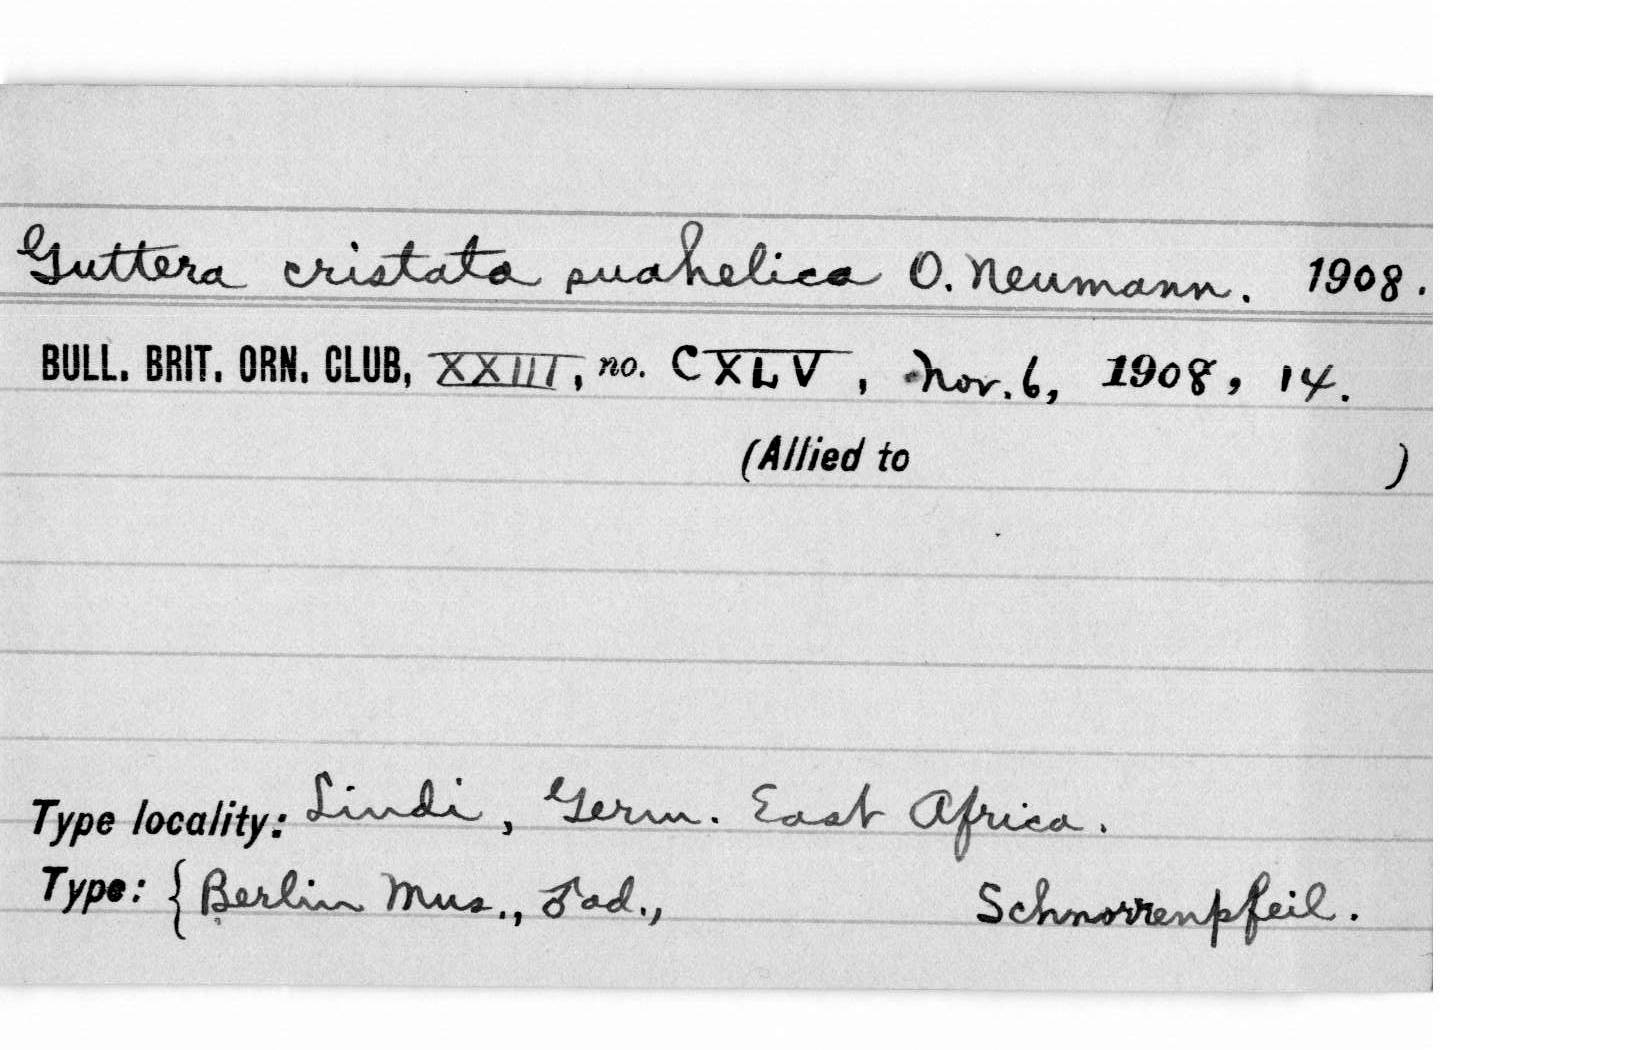 Guttera cristata suahelica O. Neumann. 1908.
BULL. BRIT. ORN. CLUB, XXIII, no. CXLV, Nov. 6, 1908, 14.
(Allied to )
Type locality: Lindi, Germ. East Africa.
Type: { Berlin Mus., ♂ ad., Schnorrenpfeil.